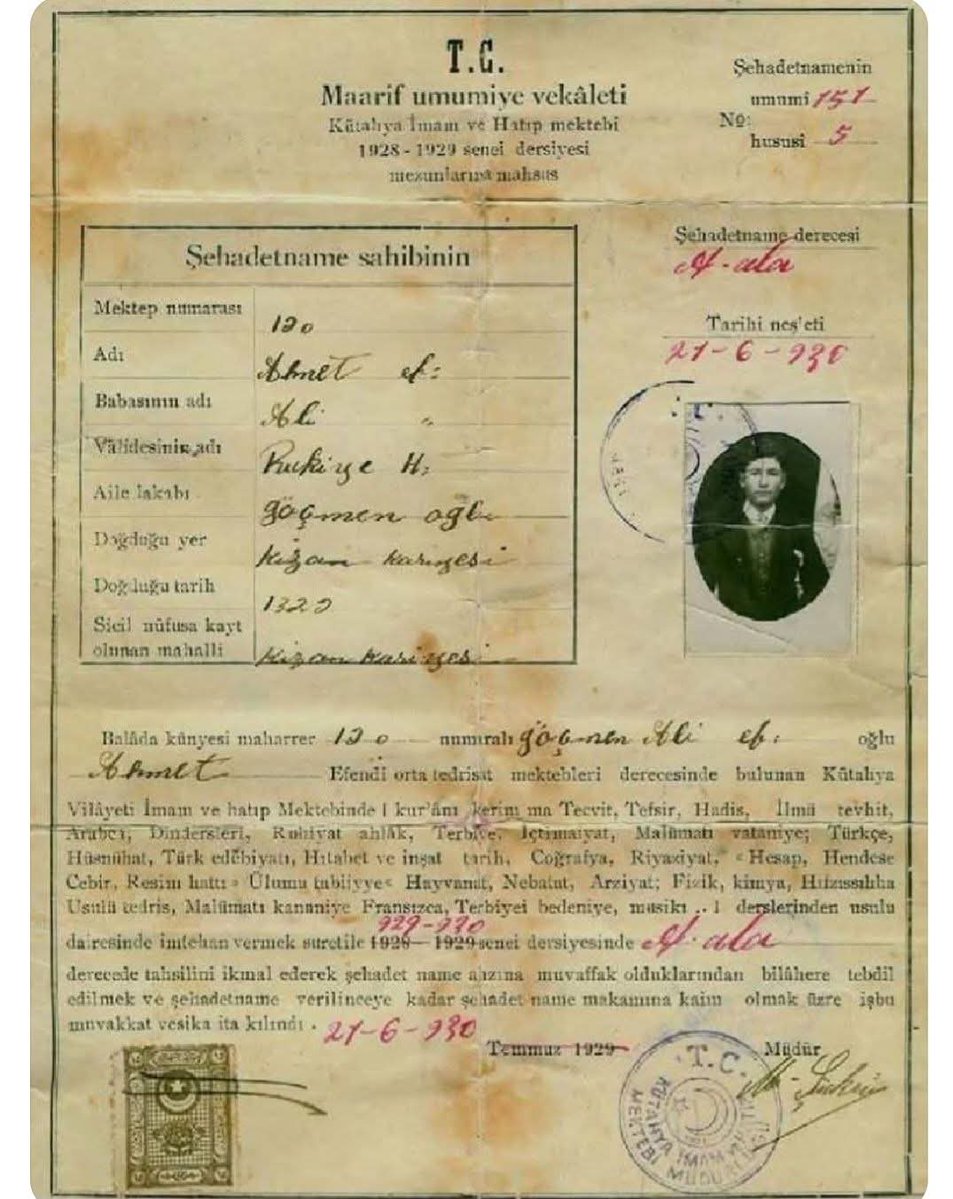 T.C.
Maarif umumiye vekâleti
Kütahya İmam ve Hatıp mektebi
1928-1929 senei dersiyesi
mezunlarına mahsus
Şehadetnamenin
umumi 151
No:
hususi 5
Şehadetname derecesi
A-ala
Tarihi neş'eti
21-6-930
Şehadetname sahibinin
Mektep numarası 120
Adı Ahmet ef:
Babasının adı Ali "
Vâlidesinin adı Rukiye H:
Aile lakabı göçmen oğlu
Doğduğu yer Kızan kariyesi
Doğduğu tarih 1322
Sicil nüfusa kayt
olunan mahalli Kızan kariyesi
Balâda künyesi maharrer 120 numaralı göçmen Ali ef: oğlu
Ahmet Efendi orta tedrisat mektebleri derecesinde bulunan Kütahya
Vilâyeti İmam ve hatıp Mektebinde [ kur'ânı kerim ma Tecvit, Tefsir, Hadis, İlmü tevhit,
Arabca, Dindersleri, Ruhiyat ahlâk, Terbiye, İçtimaiyat, Malûmatı vataniye; Türkçe,
Hüsnühat, Türk edebiyatı, Hitabet ve inşat tarih, Coğrafya, Riyaziyat, « Hesap, Hendese
Cebir, Resim hattı » Ülumu tabiiyye « Hayvanat, Nebatat, Arziyat; Fizik, kimya, Hıfzıssıhha
Usulü tedris, Malûmatı kananiye Fransızca, Terbiyei bedeniye, musiki .. ] derslerinden usulu
929-930
dairesinde imtehan vermek suretile 1928-1929 senei dersiyesinde A-ala
derecede tahsilini ikmal ederek şehadet name ahzına muvaffak olduklarından bilâhere tebdil
edilmek ve şehadetname verilinceye kadar şehadet name makamına kaim olmak üzre işbu
muvakkat vesika ita kılındı. 21-6-930
Temmuz 1929 Müdür
T.C.
KÜTAHYA İMAM
MEKTEBİ